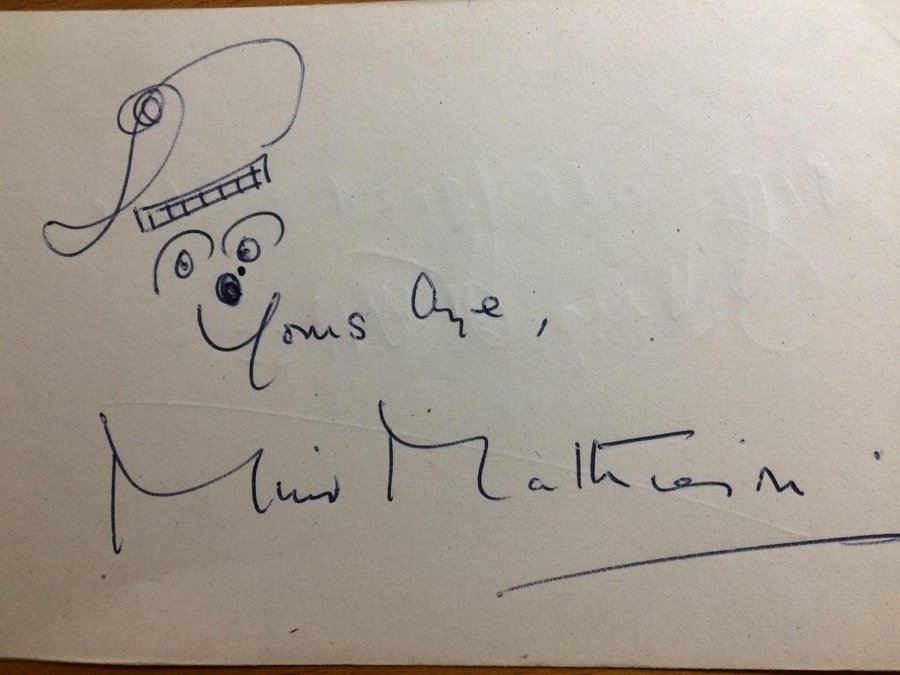 Yours Aye,
Muir Mathieson